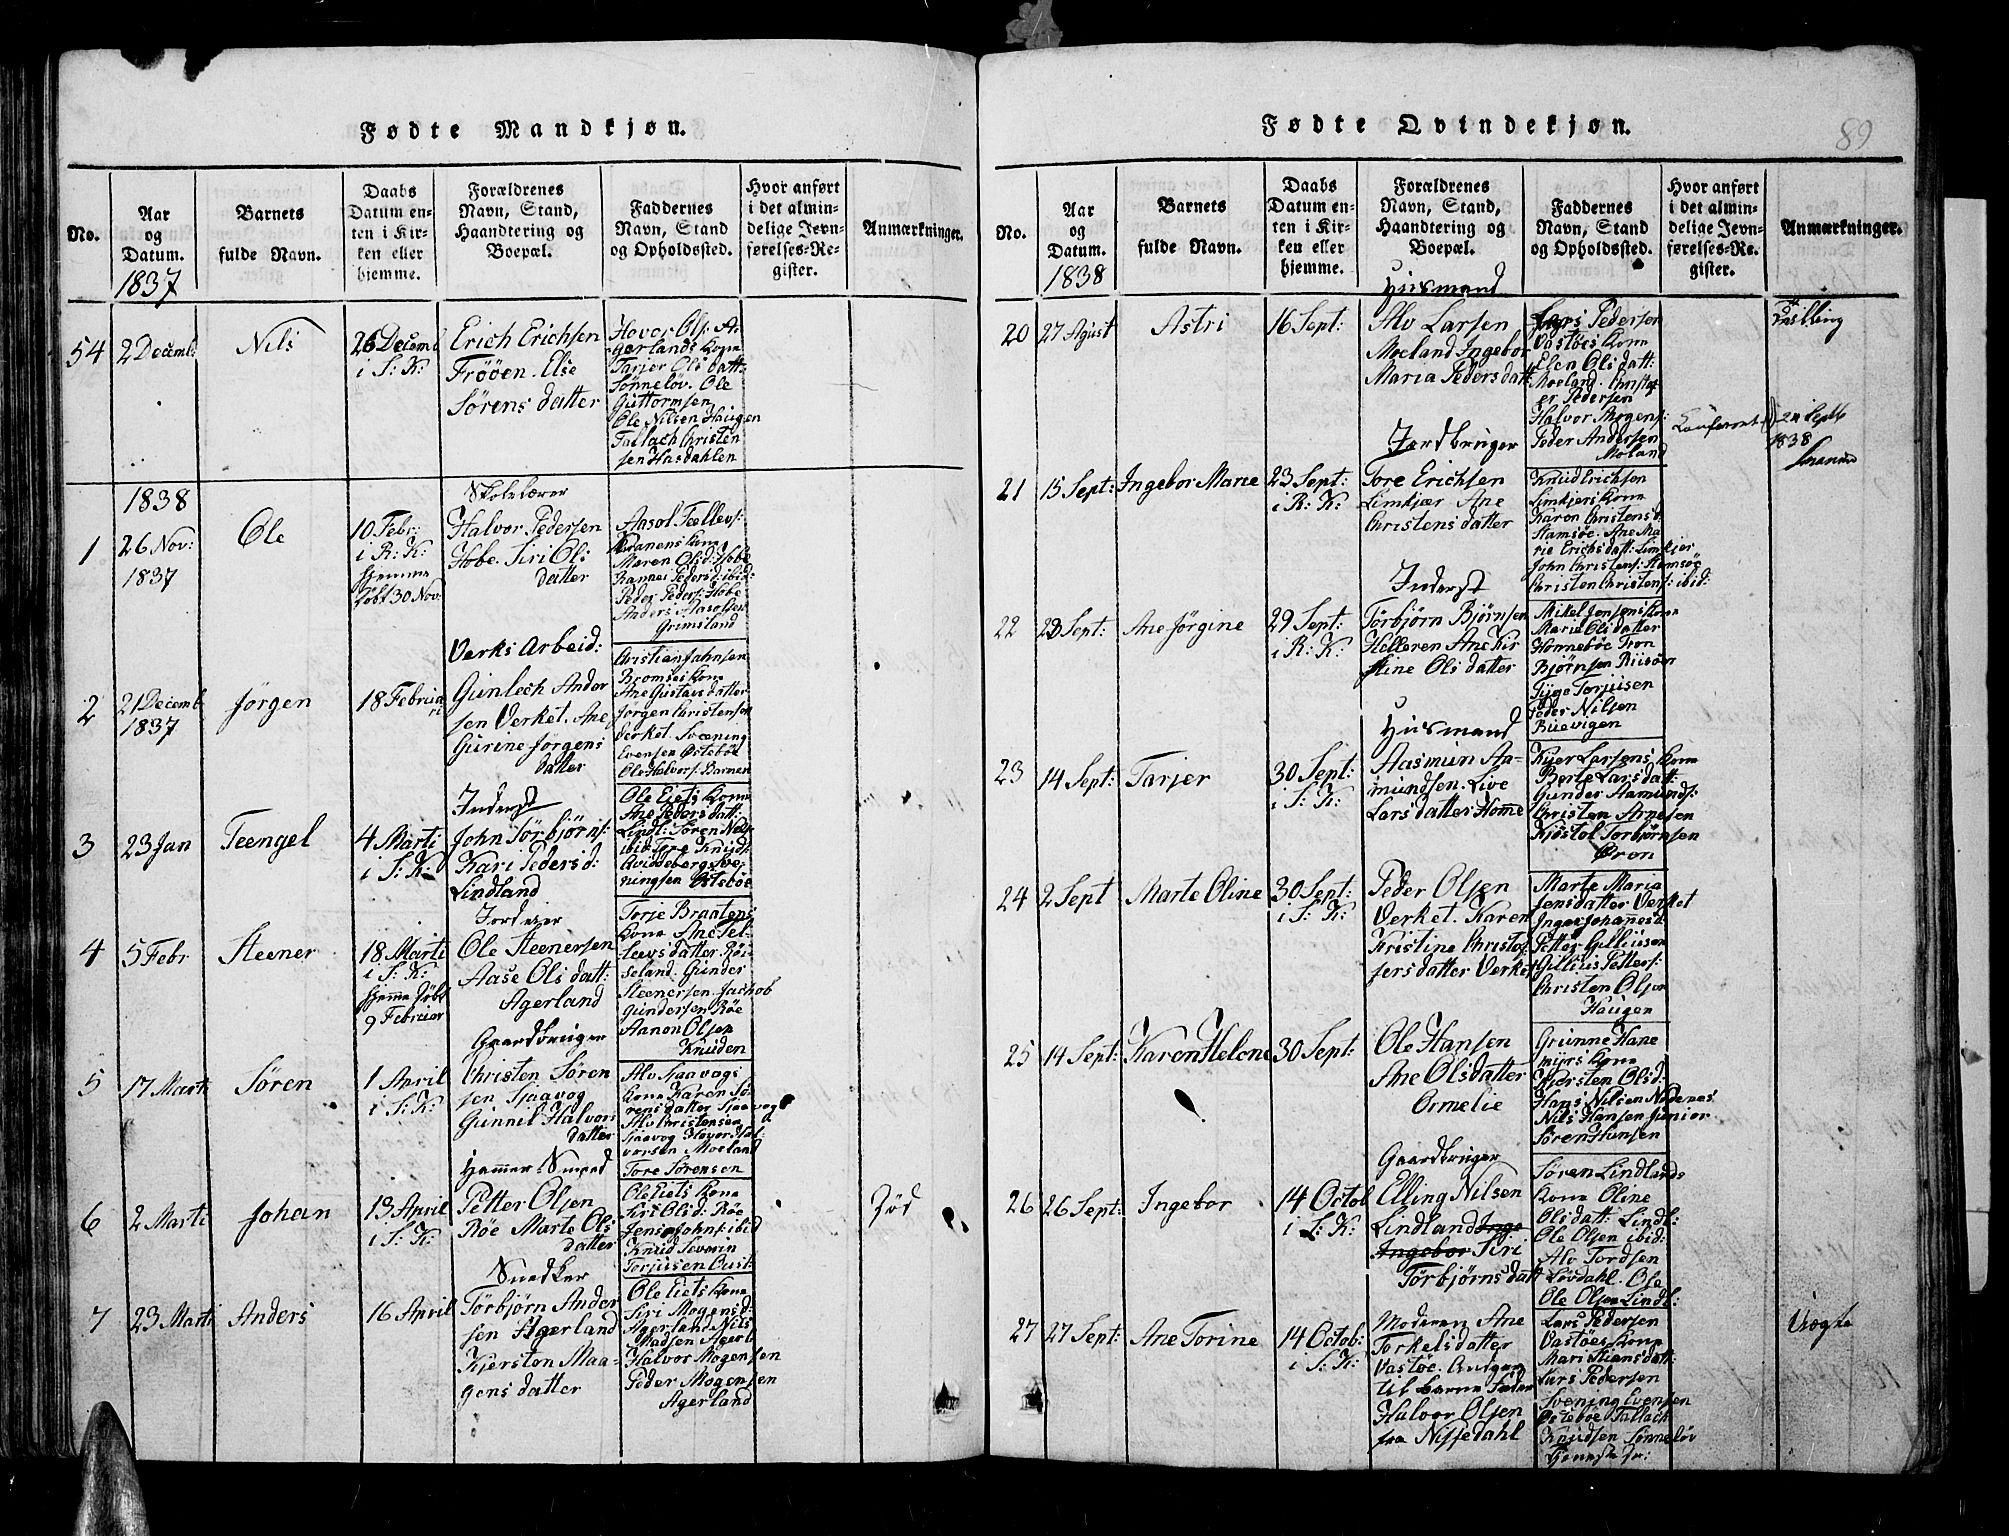 Fødte Mandkjøn.
No.
Aar
og
Datum.
1837
Barnets
fulde Navn.
Daabs
Datum en-
ten i Kir-
ken eller
hjemme.
Forældrenes
Navn, Stand,
Haandtering og
Boepæl.
Faddernes
Navn, Stand
og Opholdssted.
Hvor anført
i det almin-
delige Jevn-
førelses-Re-
gister.
Anmærkninger.
54
2 Decemb:
Nils
26 Decemb
i S: K:
Erich Erichsen
Frøöen. Else
Sørens datter
Hovor Ols: A-
gerlands Kone
Tarjer Ols datt:
Sønneløv. Ole
Guttormsen
Ole Nilsen Haugen
Tallach Christen
sen Hasdahlen
1838
1
26 Nov:
1837
Ole
10 Febr:
i R: K:
hjemme
døbt 30 Nov
Skolelærer
Halvor Pedersen
Hobe. Siri Ols
datter
Aasol Tellevs:
Kone
Maren Olsd: Hobe
Peders d: ibid:
Peder Peders: Hobe
Anders Aasolfsen
Grimsland
2
21 Decemb
1837
Jørgen
18 Februa
ri
Verks Arbeid:
Gunlech Ander
sen Verket. Ane
Gurine Jørgens
datter
Christian Jahnsen
Bromses Kone
Ane Gustavs datter
Jørgen Christensen
Verket. Svæning
Evensen Østebøe
Ole Halvors: Barnen
3
23 Jan
Teengel
4 Marti
i S: K:
Inderst
John Törbjörns:
Kari Peders d:
Lindland
Ole Eiets Kone
Ane Peders datt:
Lindl: Søren Nels
ibid Knuds:
Sve-
ningsen Østebøe
4
5 Febr
Steener
18 Marti
i S: K:
hjemme døbt
9 Februar
Jordeier
Ole Steenersen
Aase Ols datt:
Agerland
Torje Braatens
Kone Ane Tel-
leevs datter Röi-
seland. Gunder
Steenersen. Jachob
Gundersen Röe
Aanon Olsen
Knuden
5
17 Marti
Søren
1 April
i S: K:
Gaardbruger
Christen Søren
sen Sjaavog
Gunnil Halvors
datter
Alv Saavogs
Kone Karen Sø-
rens datter Sjaavog
Alv Christensen
Sjaavog Hovor Hal-
vorsen Moeland
Tore Sørensen
6
2 Marti
Johan
13 April
i S: K:
Hammer-Smed
Petter Olsen
Röe Marte Ols
datter
Ole Eiets Kone
Kirs Olsd: Röe
Jens Johns: ibid
Knud Severin
Torjusen Oust:
Død
7
23 Marti
Anders
16 April
Snedker
Törbjörn Ander
sen Agerland
Kjersten Maa-
gens datter
Ole Eiets Kone
Siri Mogensd:
Agerland Nils
Madsen Agerl:
Halvor Mogensen
Peder Mogensen
Agerland
Fødte Qvindekjøn.
89
No.
Aar
og
Datum.
1838
Barnets
fulde Navn.
Daabs
Datum en-
ten i Kir-
ken eller
hjemme.
Forældrenes
Navn, Stand,
Haandtering og
Boepæl.
Faddernes
Navn, Stand
og Opholdssted.
Hvor anført
i det almin-
delige Jevn-
førelses-Re-
gister.
Anmærkninger.
20
27 Agust
Astri
16 Sept:
Husmand
Alv Larsen
Moeland Ingebor
Maria Peders datt:
Lars Pedersen
Vastöes Kone
Elen Ols datt:
Moeland. Christof
er Pedersen
Halvor Mogens:
Peder Andersen
Moland
Tvilling
Confereret
24 Septb
1838
21
15 Sept:
Ingebor Marie
23 Sept:
i R: K:
Jordbruger
Tore Erichsen
Limkjær Ane
Christens datter
Knud Erichsen
Limkjers Kone
Karon Christens d:
Stamsöe. Ane Ma
rie Erichs datt: Limkjer
John Christens: Stamsöe
Christen Christens: ibid:
22
23 Sept:
Ane Jørgine
29 Sept:
i R: K:
Inderst
Törbjørn Bjørnsen
Helleren Ane Kir
stine Ols datter
Mikel Jensens Kone
Marie Ols datter
Hönneböe Tron
Bjørnsen Riisöen
Tyge Torjusen
Peder Nilsen
Buevigen
23
14 Sept:
Tarjer
30 Sept:
i S: K:
Husmand
Aasmun Aa-
mundsen. Live
Lars datter Home
Kyer Larsens Kone
Berte Lars datt:
Gunder Aamunds:
Christen Arnesen
Kjöstol Torbjörnsen
Øron
24
2 Sept
Marte Oline
30 Sept:
i S: K:
Peder Olsen
Verket. Karen
Kristine Christof
fersdatter Verket
Marte Maria
Jens datter Verket
Inger Johanes d:
Petter Gilliusen
Gillius Petters:
Christen Olsen
Haugen
25
14 Sept:
Karen Helene
30 Sept:
Ole Hansen
Ane Ols datter
Ormelie
Grunne Hane
myrs Kone
Kjersten Olsd:
Hans Nilsen Nedenes
Nils Hansen Junior
Søren Hansen
26
26 Sept:
Ingebor
14 Octob
i S: K:
Gaardbruger
Elling Nilsen
Lindland Inge
Ingebor Siri
Törbjørns datt
Søren Lindlands
Kone Oline
Ols datt: Lindl:
Ole Olsen ibid:
Alv Tordsen
Løvdahl. Ose
Ole Olsen Lindl:
27
27 Sept:
Ane Torine
14 Octob:
i S: K:
Moderen Ane
Torkels datter
Vastöe. Angiven
til Barne Fader
Halvor Olsen
fra Nissedahl
Lars Pedersen
Vastöes Kone
Mari Stians datt:
Lars Pedersen
Svening Evensen
Østebøe Tallach
Knudsen Sønneløv
Uægte